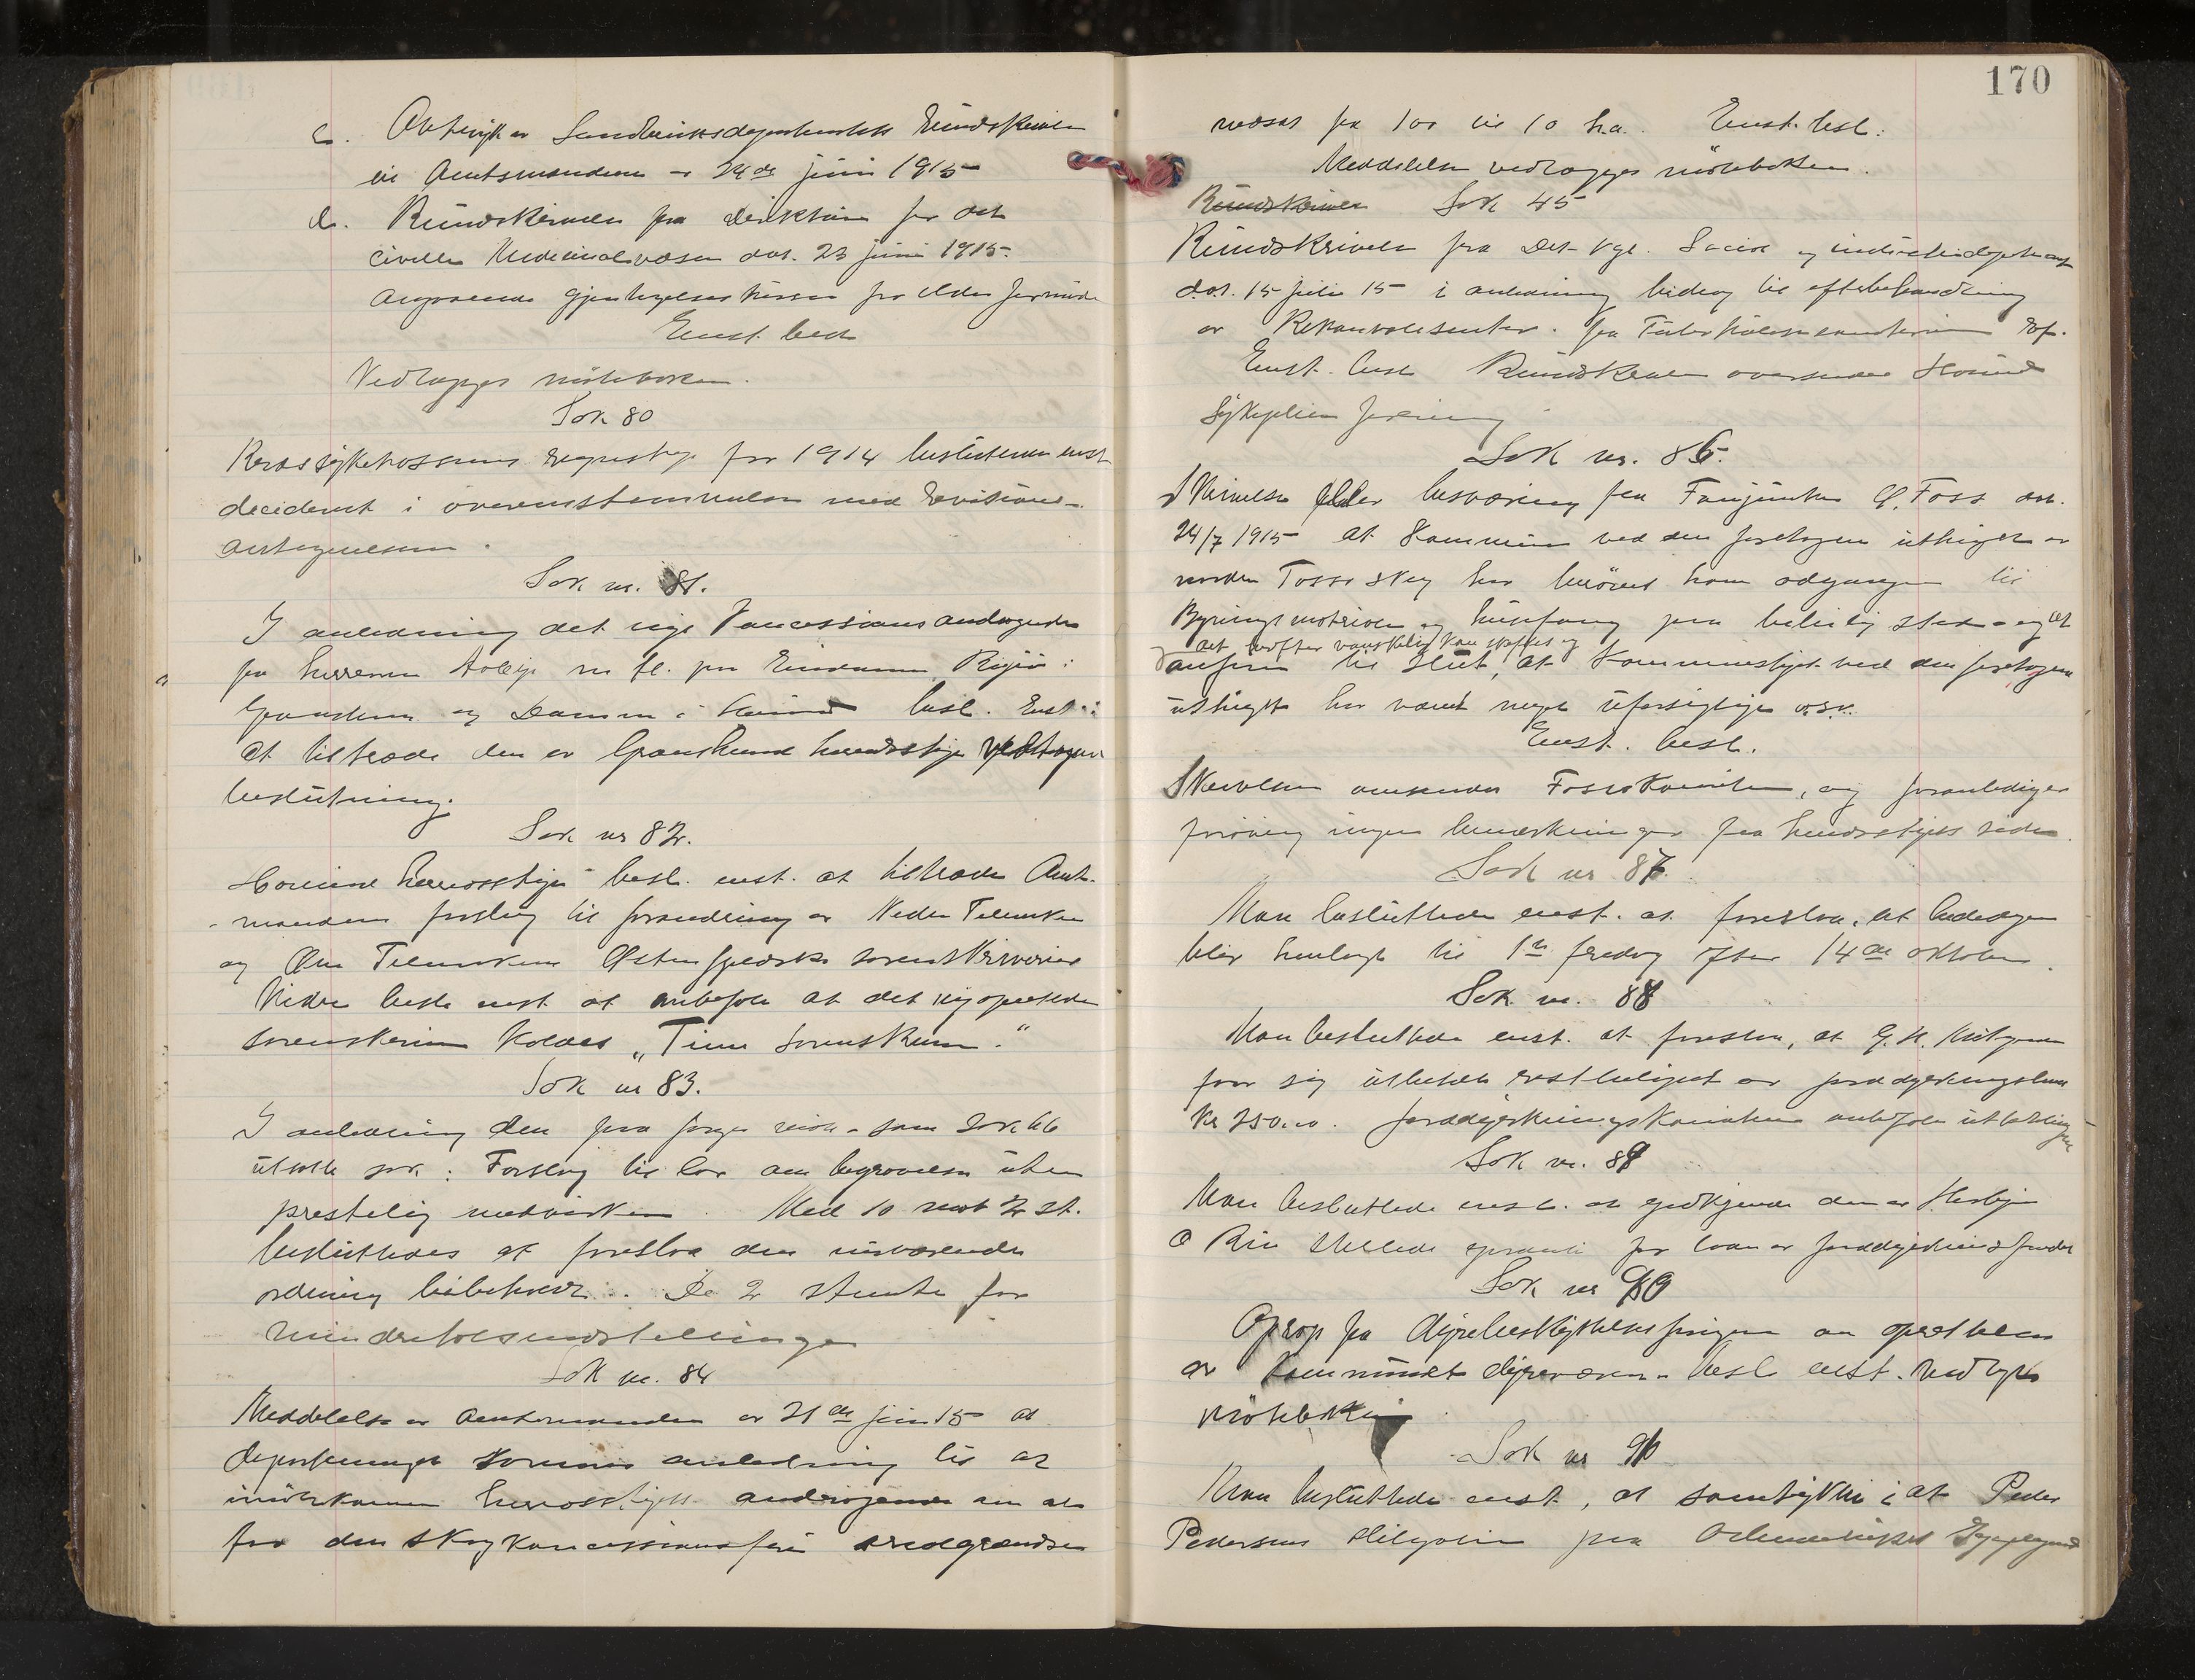 c. Avtryk av Landbruksdepartementets Rundskrivelse
til Amtsmændene av 24de juni 1915
d. Rundskrivelse fra direktøren for det
civile Medicinalvæsen dat. 23 juni 1915
angaaende
Enst. besl.
Vedlægges møteboken.
Sak 80
Kredssykekassens regnskap for 1914 besluttedes enst.
decidert i overensstemmelse med Revisions-
antegnelserne.
Sak nr. 81.
I anledning det nye Concessionsandragende
fra herrerne Aall m. fl. paa Eiendommen
Gransherad og i Hovind besl. Enst.
at tiltræde den av Gransherred herredsstyre vedtagne
beslutning.
Sak nr 82.
Hovind herredsstyre besl. enst. at tiltræde Amt-
mandens forslag til forandring av Nedre Telemarken
og Øvre Telemarken Østenfjeldske sorenskriverier
Videre besl. enst. at anbefale at det nyoprettede
sorenskriveri kaldes „Tinn Sorenskriveri."
Sak nr 83.
I anledning den paa forrige møte som sak 66
utsatte sak: Forslag til lov om begravelse uten
prestelig medvirken. Med 10 mot 2 st.
besluttedes at foreslaa den nuværende
ordning bibeholdt. De 2 stemte for
mindretalsindstillingen
Sak nr. 84
Meddelelse av Amtmanden av 21de juni 15 at
departementet anledning til at
imøtekomme herredsstyrets andragende om at
faa den skogkoncessionsfri arealgrændse
170
nedsat fra 100 til 10 ha. Enst. besl.:
Meddelelsen vedlægges møteboken.
Rundskrivelse Sak 45
Rundskrivelse fra Det kgl. Social og industridepartement
dat. 15 juli 15 i anledning bidrag til efterbehandling
av Rekonvalesenter fra Tuberkulosesanatorier
Enst. besl. Rundskrivelsen oversendes Hovind
Sykepleieforening
Sak nr. 86.
Skrivelse eller besværing fra Fanejunker G. Foss dat.
24/7 1915 at Kommunen ved den foretagne uthugst av
skog har berøvet ham adgangen til
Bygningsmatrialer og husefang paa beleilig sted og at
det herefter vanskelig kan skaffes og
anfører til slut, at Kommunestyret ved den foretagne
uthugst har været meget uforsigtige o.s.v.
Enst. besl.
Skrivelsen oversendes Fosskomiteen, og foranlediger
forøvrig ingen bemerkninger fra herredsstyrets side.
Sak nr 87.
Man besluttede enst. at foreslaa, at budedagen
blir henlagt til 1ste fredag efter 14de oktober.
Sak nr. 88
Man besluttede enst. at foreslaa, at G. H.
faar sig utbetalt restbeløpet av jorddyrkningslaan
Kr 250.00. Jorddyrkningskomiteen anbefaler utbetalingen
Sak nr. 89
Man besluttede enst. at godkjende den av
O Rui stillede garanti for laan av jorddyrkningsfondet
Sak nr 90
Oprop fra dyrebeskyttelsesforeningen om oprettelse
av kommunalt dyreværn. Besl. enst. vedlagt
møteboken
Sak nr 91
Man besluttede enst, at samtykke i at Peder
Pedersens paa